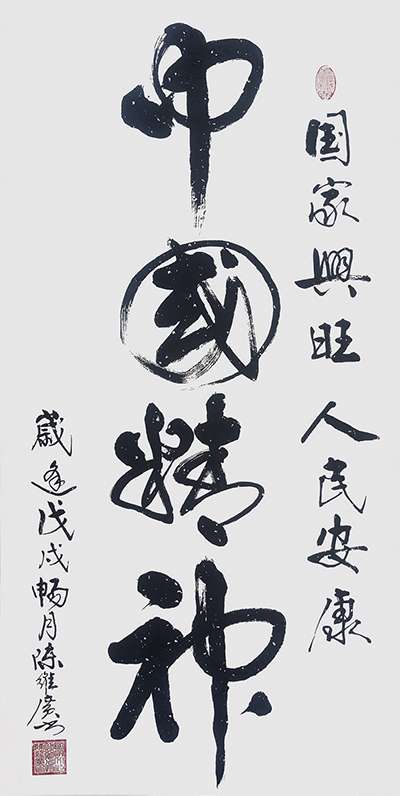 国家興旺 人民安康
中國精神
歲逢戊戌暢月陈維廣书